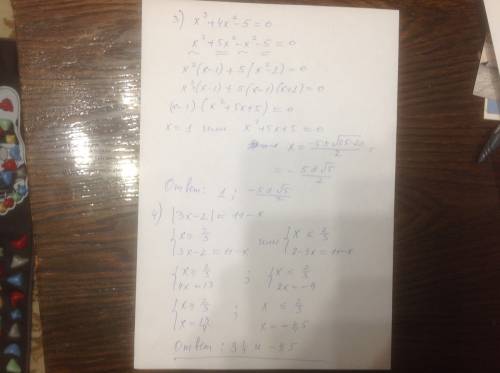 3) x³ + 4x² - 5 = 0
x³ + 5x² - x² - 5 = 0
x²(x-1) + 5(x²-1) = 0
x²(x-1) + 5(x-1)(x+1) = 0
(x-1)(x² + 5x + 5) = 0
x = 1 или x² + 5x + 5 = 0
x = (-5 ± √25-20)/2 =
= (-5 ± √5)/2
Ответ: 1; (-5 ± √5)/2
4) |3x-2| = 11 - x
{ x ≥ 2/3 или { x ≤ 2/3
3x-2 = 11-x 2-3x = 11-x
{ x ≥ 2/3 ; { x ≤ 2/3
4x = 13 2x = -9
{ x ≥ 2/3 ; x ≤ 2/3
x = 13/4 x = -4,5
Ответ: 3 1/4 и -4,5